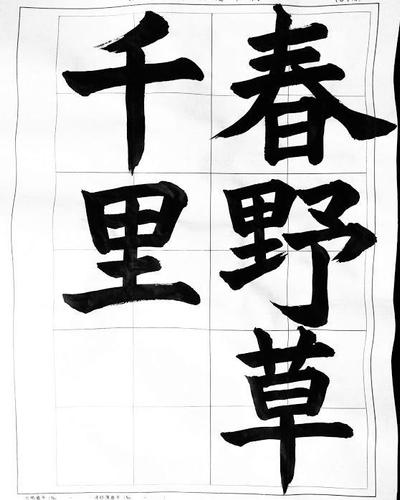 春野草
千里